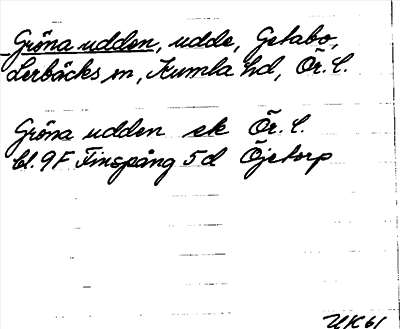 Gröna udden, udde, Getabo,
Lerbäcks sn, Kumla hd, Ör. l.
Gröna udden ek Ör. l.
bl. 9F Finspång 5d Öjetorp
UK61